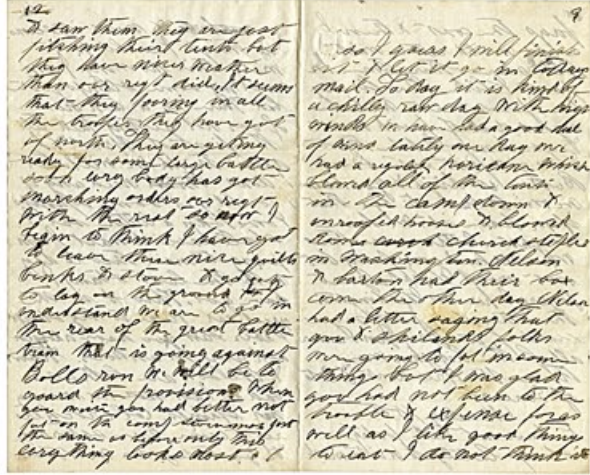 12
I saw them they are just
pitching their tents but
they have nicer weather
than our regt did. It seems
that they forming in all
the troops they have got
of north. They are getting
ready for some large battle
every body has got
marching orders our regt
with the rest so now I
begin to think I have got
to leave these nice quilts
bunks & stove & go
to lay on the ground
understand we are to go in
the rear of the great battle
train that is going against
Bolls run we will be to
guard the provisions When
you write you had better not
put on the comp
the same as before only this
every thing looks dost
9
so I guess I will finish
it & let it go in todays
mail. To day it is kind of
a chilly raw day with high
winds we have had a good deal
of wind lately one day we
had a regular horicane which
blowed all of the tents
in the camp down &
unroofed houses & blowed
some church steples
in Washington. Nelson
& barton had their box
come the other day
had a letter saying that
you & folks
were going to put in some
things but I was glad
you had not been to the
trouble & expense for as
well as I like good things
to eat I do not think it